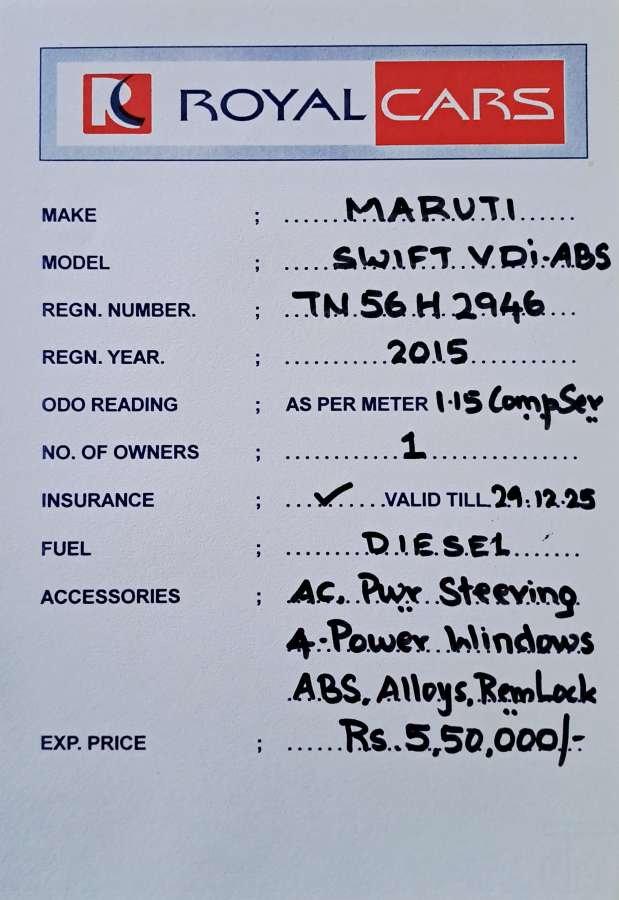 R ROYAL CARS
MAKE ; ......MARUTI......
MODEL ; .....SWIFT VDi-ABS
REGN. NUMBER. ; ..TN 56 H 2946...
REGN. YEAR. ; ..........2015..........
ODO READING ; AS PER METER 1.15 CompSer
NO. OF OWNERS ; ...........1...............
INSURANCE ; ...✓....VALID TILL 29.12.25
FUEL ; .......DIESEL......
ACCESSORIES ; AC, Pwr Steering
4-Power Windows
ABS, Alloys, RemLock
EXP. PRICE ; ......Rs. 5,50,000/-